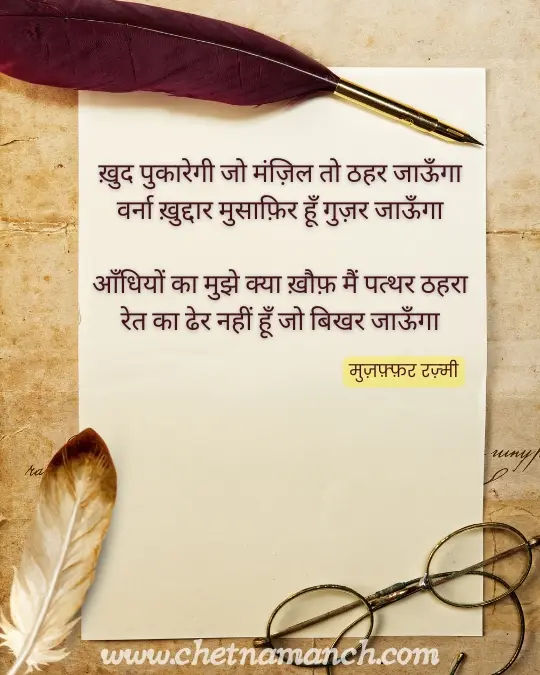 ख़ुद पुकारेगी जो मंज़िल तो ठहर जाऊँगा
वर्ना ख़ुद्दार मुसाफ़िर हूँ गुज़र जाऊँगा
आँधियों का मुझे क्या ख़ौफ़ मैं पत्थर ठहरा
रेत का ढेर नहीं हूँ जो बिखर जाऊँगा
मुज़फ़्फ़र रज़्मी
www.chetnamanch.com